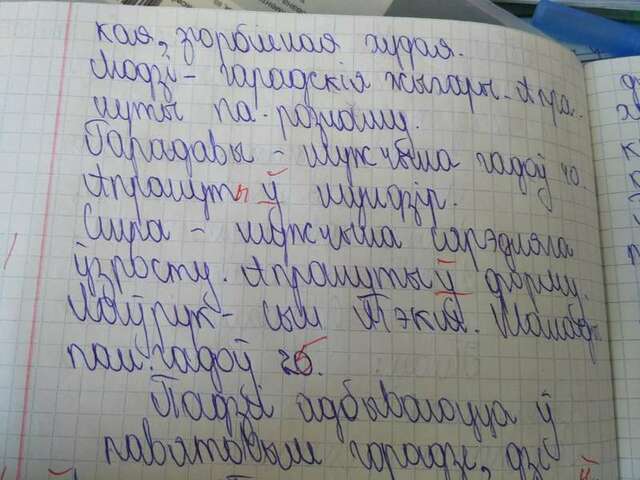 кая, згорбленая худая.
Людзі - гарадскія жыхары. Апра-
нуты па-рознаму.
Гарадавы - мужчына гадоў 40.
Апрануты ў мундзір.
Сіпа - мужчына сярэдняга
ўзросту. Апрануты ў форму.
сын Тэклі. Малады
пан. гадоў 26.
Падзеі адбываюцца ў
павятовым горадзе, дзе